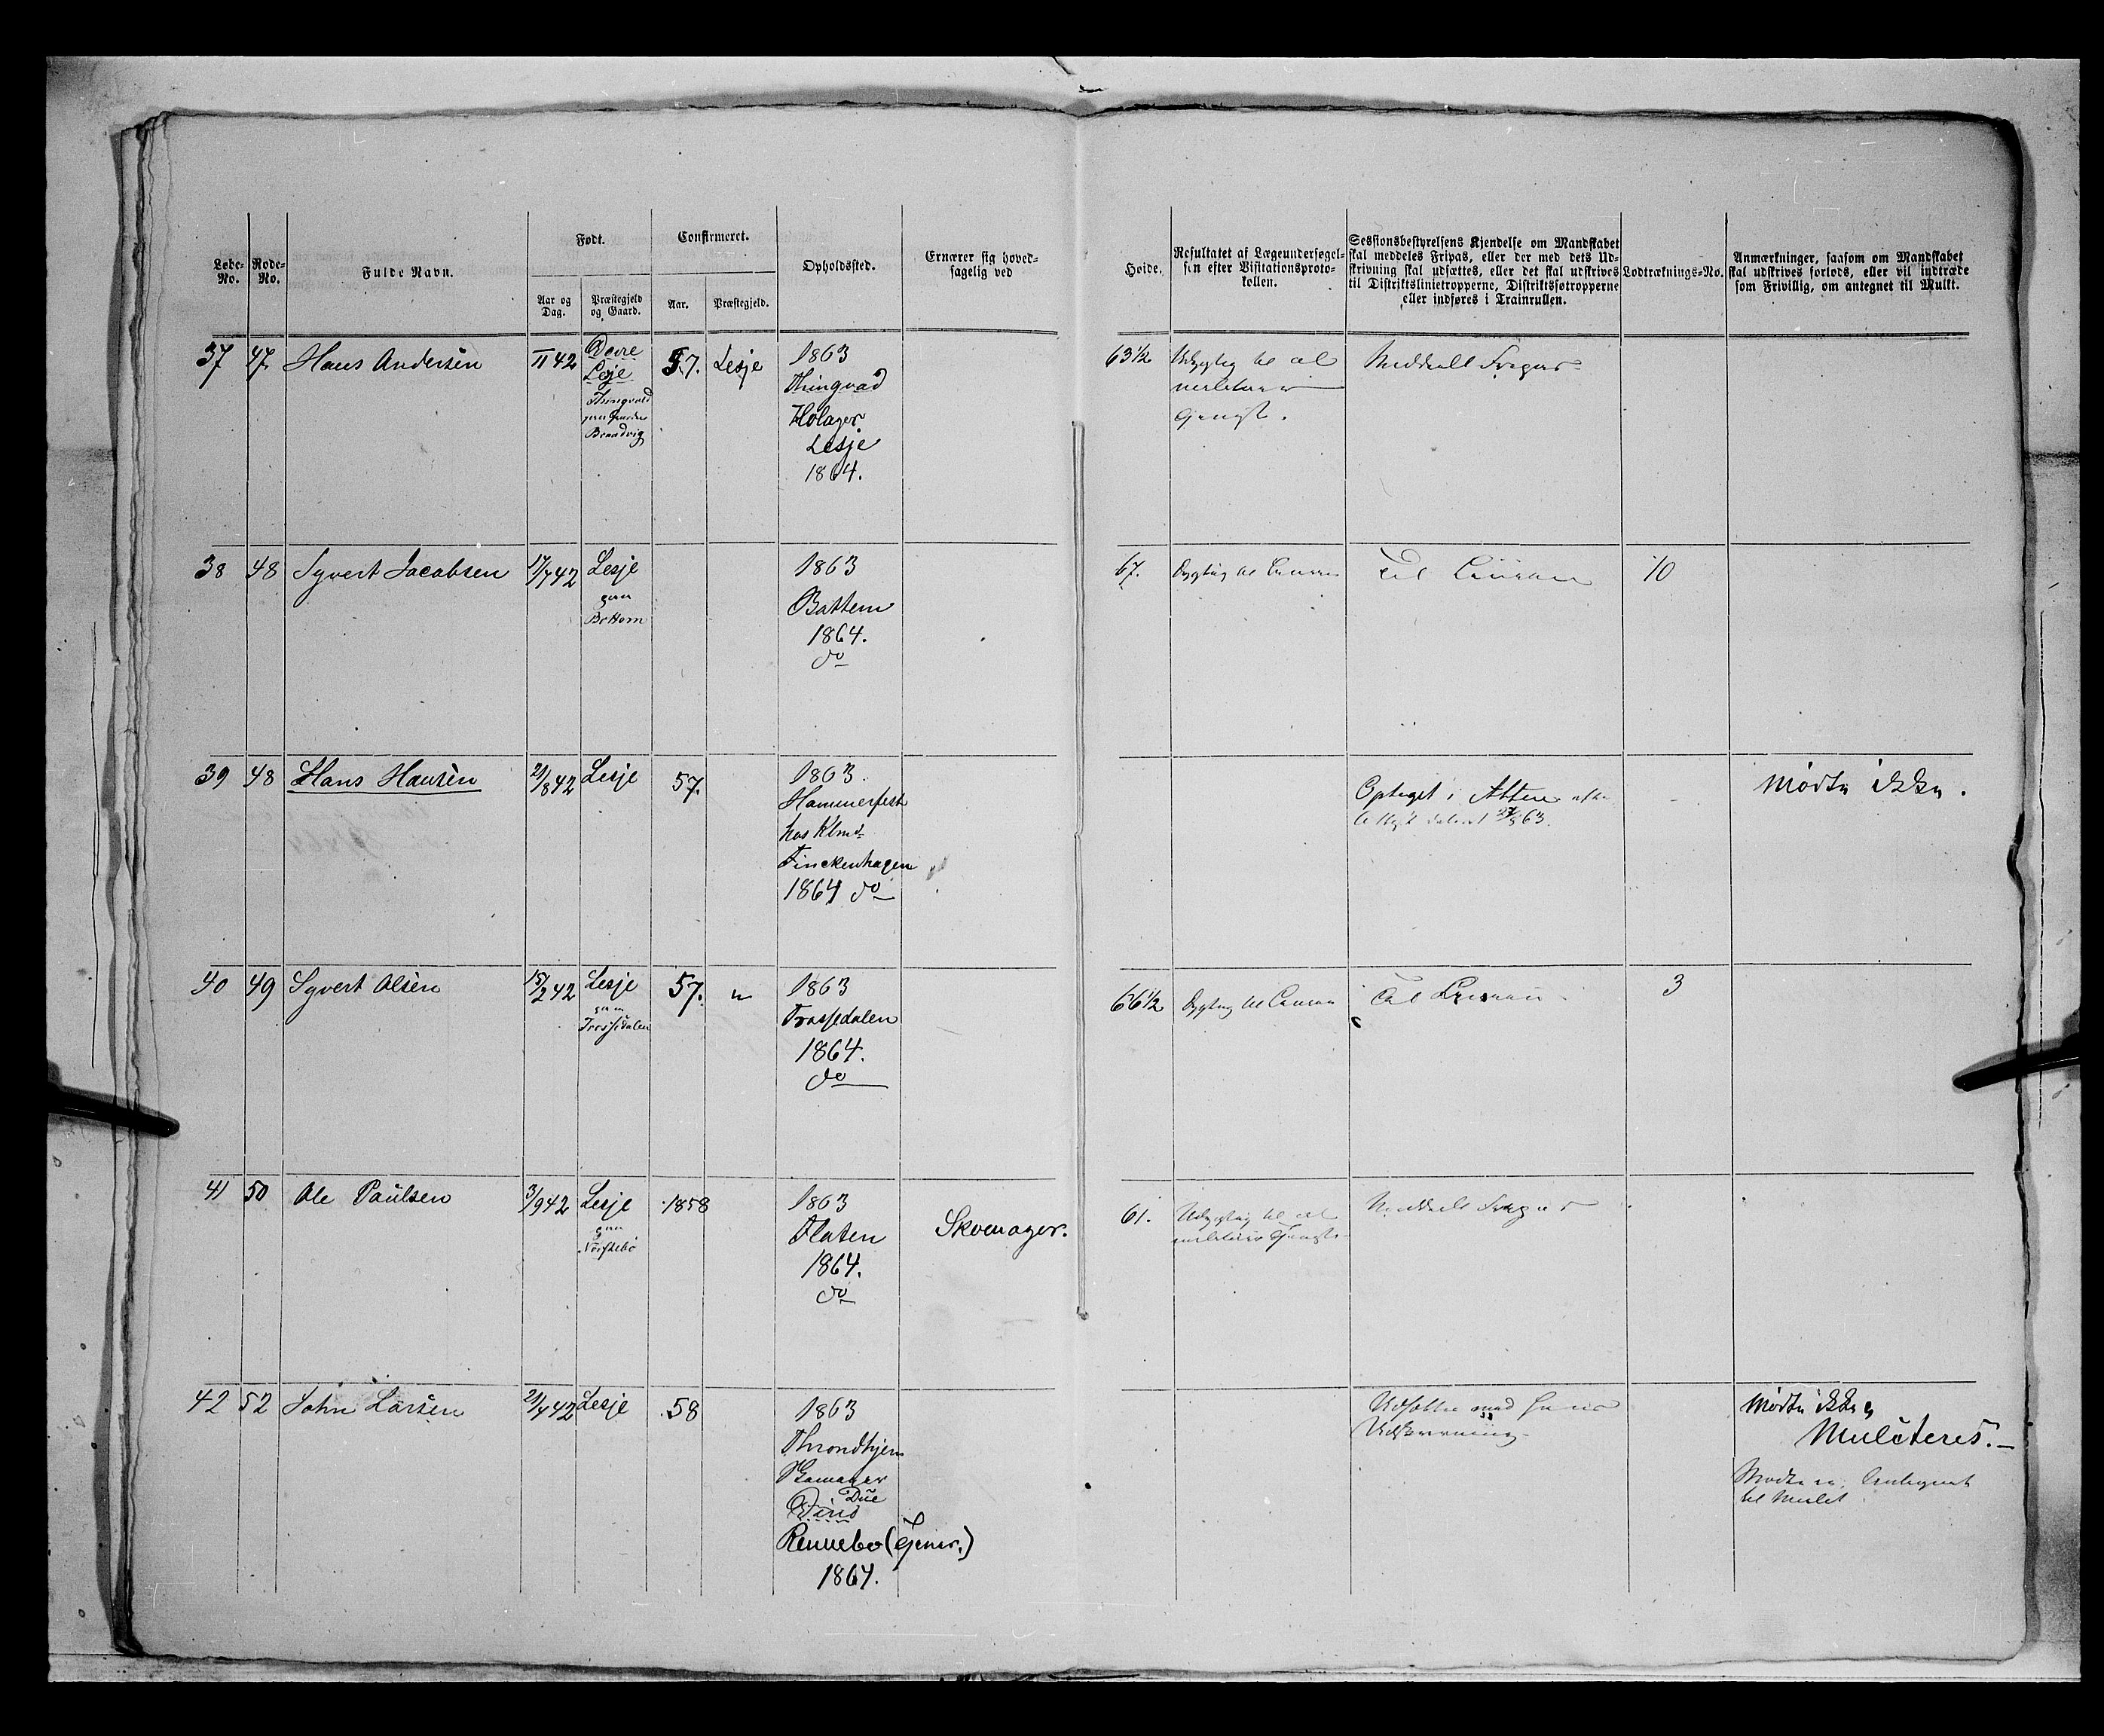 Løbe-No.
Rode-No.
Fulde Navn.
Født.
Aar og Dag.
Præstegjeld og Gaard.
Confirmeret.
Aar.
Præstegjeld.
Opholdssted.
Ernærer sig hoved-
sagelig ved
Høide.
Resultatet af Lægeundersøgel-
sen efter Visitationsproto-
kollen.
Sessionsbestyrelsens Kjendelse om Mandskabet
skal meddeles Fripas, eller der med dets Ud-
skrivning skal udsættes, eller det skal udskrives
til Distriktslinietropperne, Distriktsfotropperne
eller indføres i Trainrullen.
Lodtræknings-No.
Anmærkninger, saasom om Mandskabet
skal udskrives forlods, eller vil indtræde
som Frivillig, om antegnet til Mulkt.
37 47 Hans Andersen 42
Dovre
Lesje
57. Lesje
1863
Thingvad
Holager
Lesje
1864.
63 1/2 Udygtig til al
militær
Tjenest.
Meddeelt Fripas
38 48 Syvert Jacobsen 17/7 42 Lesje
Bottem
1863
Bottem
1864.
do
67. Dygtig til Linien Til Linien 10
39 48 Hans Hansen 21/8 42 Lesje 57.
1863.
Hammerfest
hos
Finckenhagen
1864 do
Optaget i Alten
63.
Mødte ikke.
40 49 Syvert Olsen 15/2 42 Lesje
57. "
1863
Trosjedalen
1864.
do
66 1/2 Dygtig til Linien Til Linien 3
41 50 Ole Paulsen 3/9 42 Lesje
1858
1863
Flaten
1864.
do
Skomager.
61. Udygtig til al
militær Tjeneste
Meddeelt Fripas
42 52 John Larsen 21/4 42 Lesje 58
1863
Throndhjem
Skomager
Due
Rennebo (Tjener.)
1864.
Udsættes med hans
Udskrivning
Mødte ikke
Mulcteres.
Mødte ei. Antegnet
til Mulct